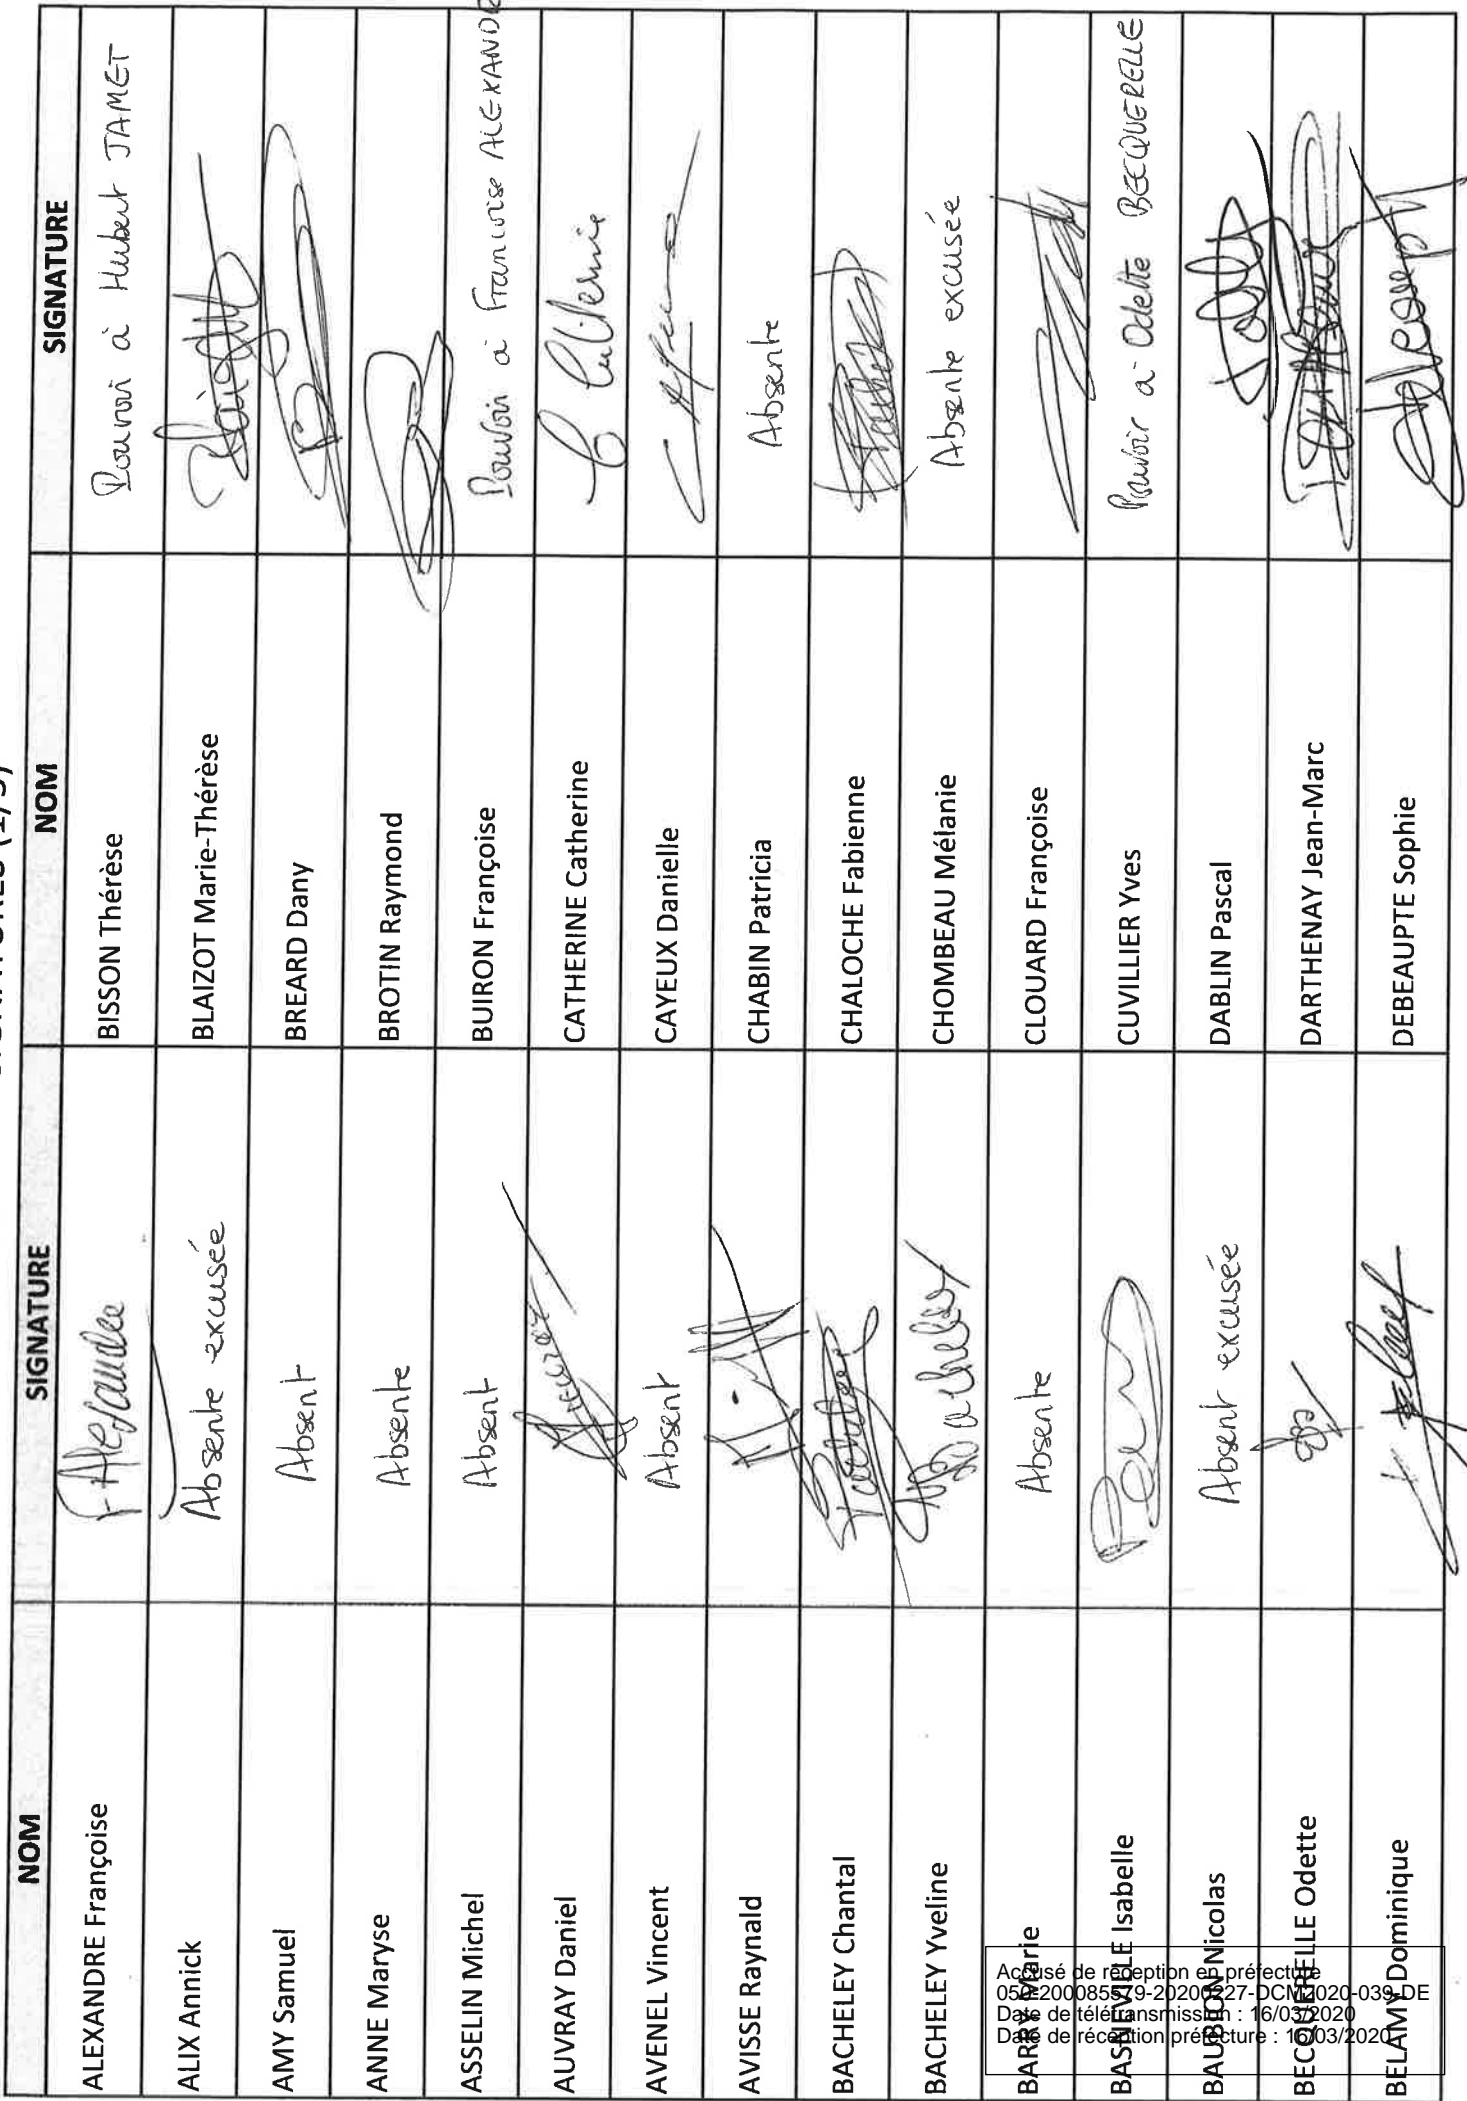 NOM SIGNATURE NOM SIGNATURE
ALEXANDRE Françoise BISSON Thérèse Pouvoir à Hubert JAMET
ALIX Annick Absente excusée BLAIZOT Marie-Thérèse
AMY Samuel Absent BREARD Dany
ANNE Maryse Absente BROTIN Raymond
ASSELIN Michel Absent BUIRON Françoise Pouvoir à Françoise ALEXANDRE
AUVRAY Daniel CATHERINE Catherine
AVENEL Vincent Absent CAYEUX Danielle
AVISSE Raynald CHABIN Patricia Absente
BACHELEY Chantal CHALOCHE Fabienne
BACHELEY Yveline Bacheley CHOMBEAU Mélanie Absente excusée
BARRY Marie Absente CLOUARD Françoise
BASNEVILLE Isabelle CUVILLIER Yves Pouvoir à Odette BECQUERELLE
BAUBION Nicolas Absent excusée DABLIN Pascal
BECQUERELLE Odette DARTHENAY Jean-Marc
BELAMY Dominique DEBEAUPTE Sophie
Accusé de réception en préfecture
050-200085579-20200227-DCM2020-039-DE
Date de télétransmission : 16/03/2020
Date de réception préfecture : 16/03/2020